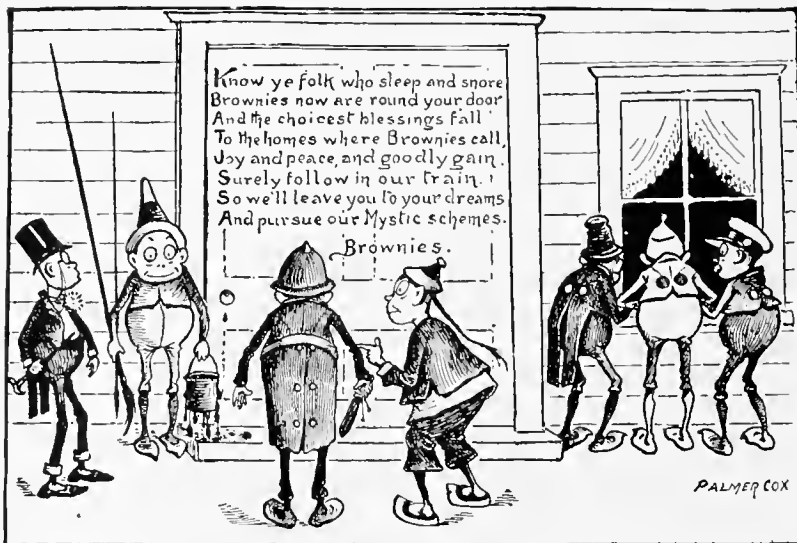 Know ye folk who sleep and snore
Brownies now are round your door
And the choicest blessings fall
To the homes where Brownies call,
Joy and peace, and goodly gain.
Surely follow in our train.
So we'll leave you to your dreams
And pursue our Mystic schemes.
Brownies.
PALMER COX